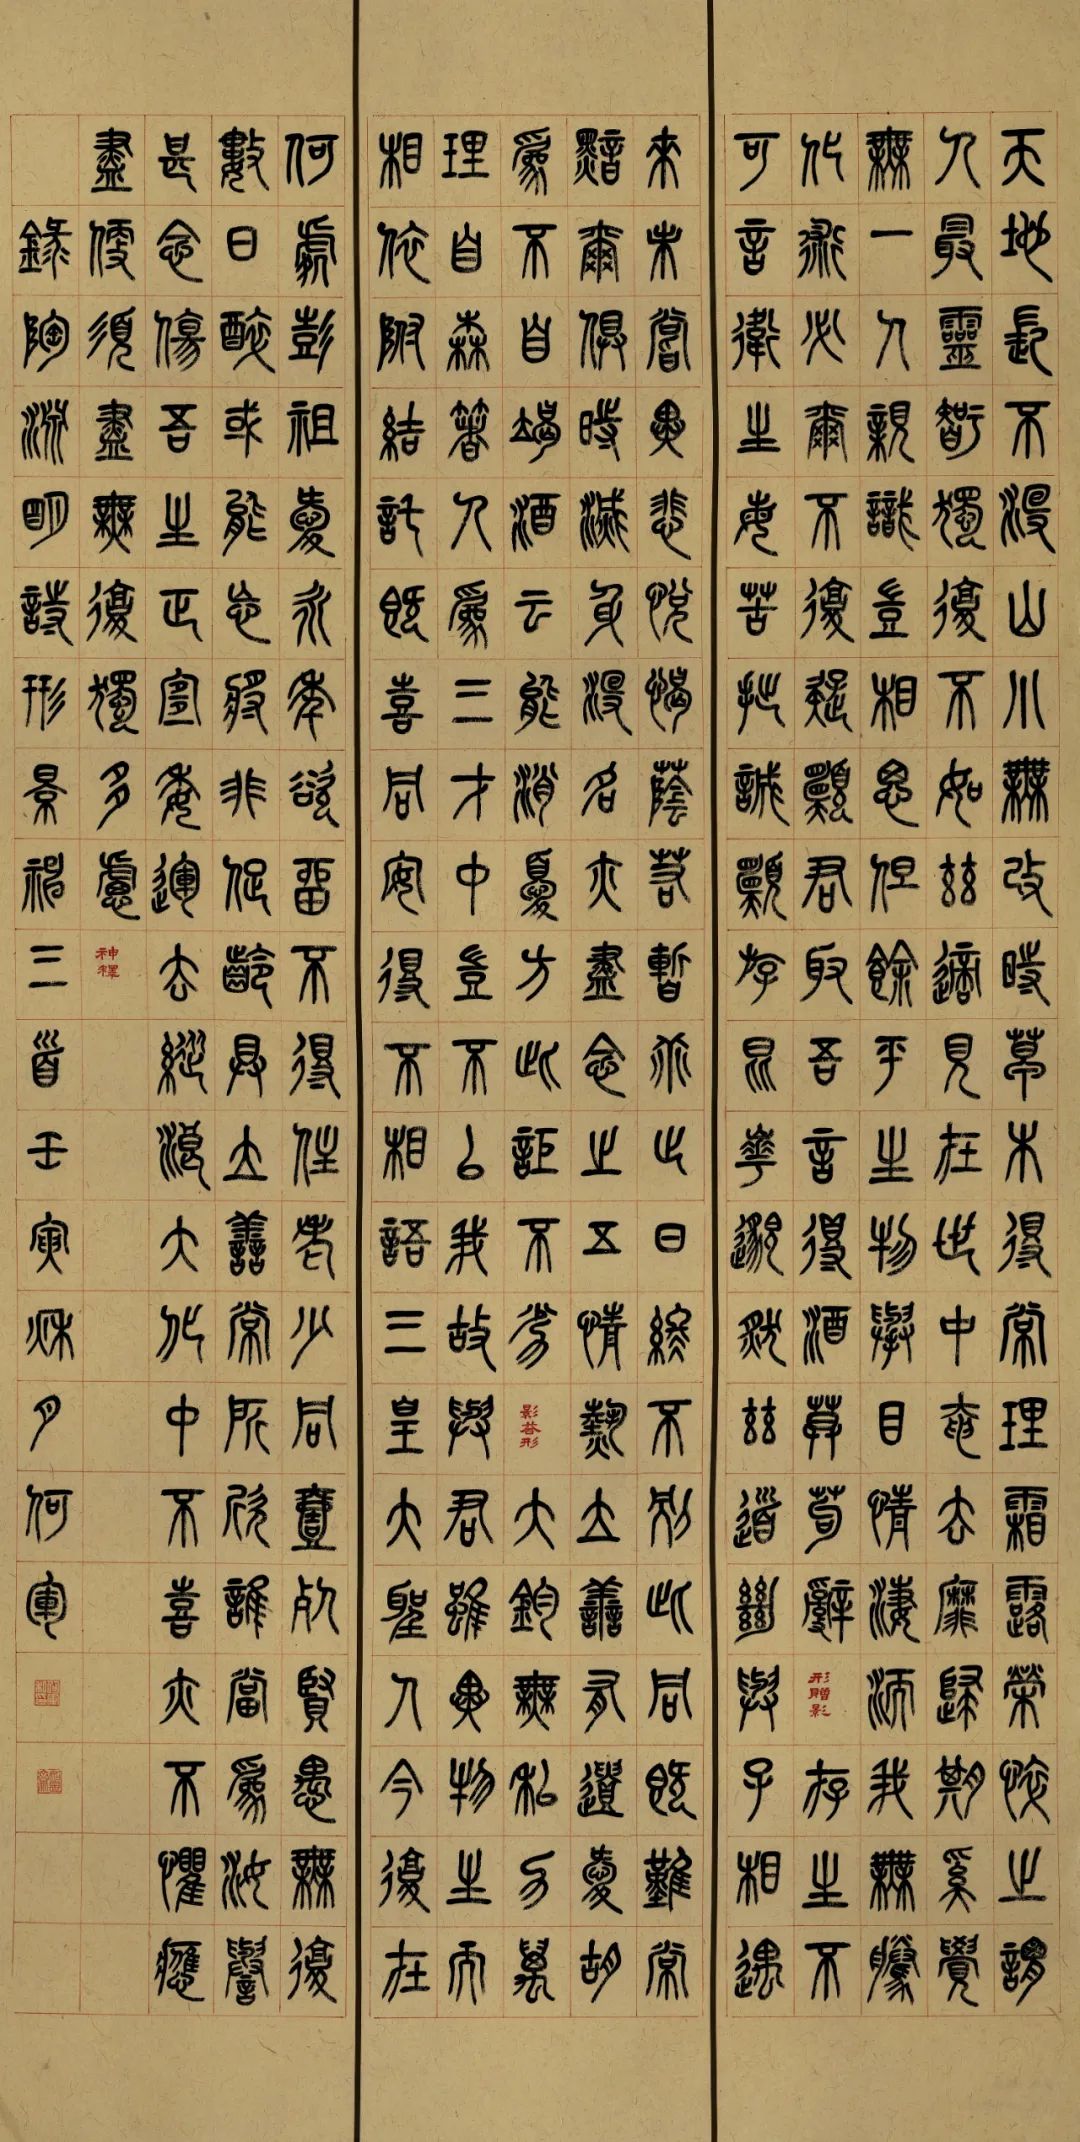 天地長不没山川無改時草木得常理霜露榮悴之謂
人最靈智獨復不如兹適見在世中奄去靡歸期奚覺
無一人親識豈相思但餘平生物舉目情悽洏我無騰
化術必爾不復疑願君取吾言得酒莫苟辭形贈影存生不
可言衛生每苦拙誠願游昆華邈然兹道絶與子相遇
來未嘗異悲悦憩蔭若暫乖止日終不别此同既難常
黯爾俱時滅身没名亦盡念之五情熱立善有遺愛胡
爲不自竭酒云能消憂方此詎不劣影答形大鈞無私力萬
理自森著人爲三才中豈不以我故與君雖異物生而
相依附結託既喜同安得不相語三皇大聖人今復在
何處彭祖愛永年欲留不得住老少同壹死賢愚無復
數日醉或能忘將非促齡具立善常所欣誰當爲汝譽
甚念傷吾生正宜委運去縱浪大化中不喜亦不懼應
盡便須盡無復獨多慮神釋
録陶淵明詩形景神三首壬寅秋月何軍